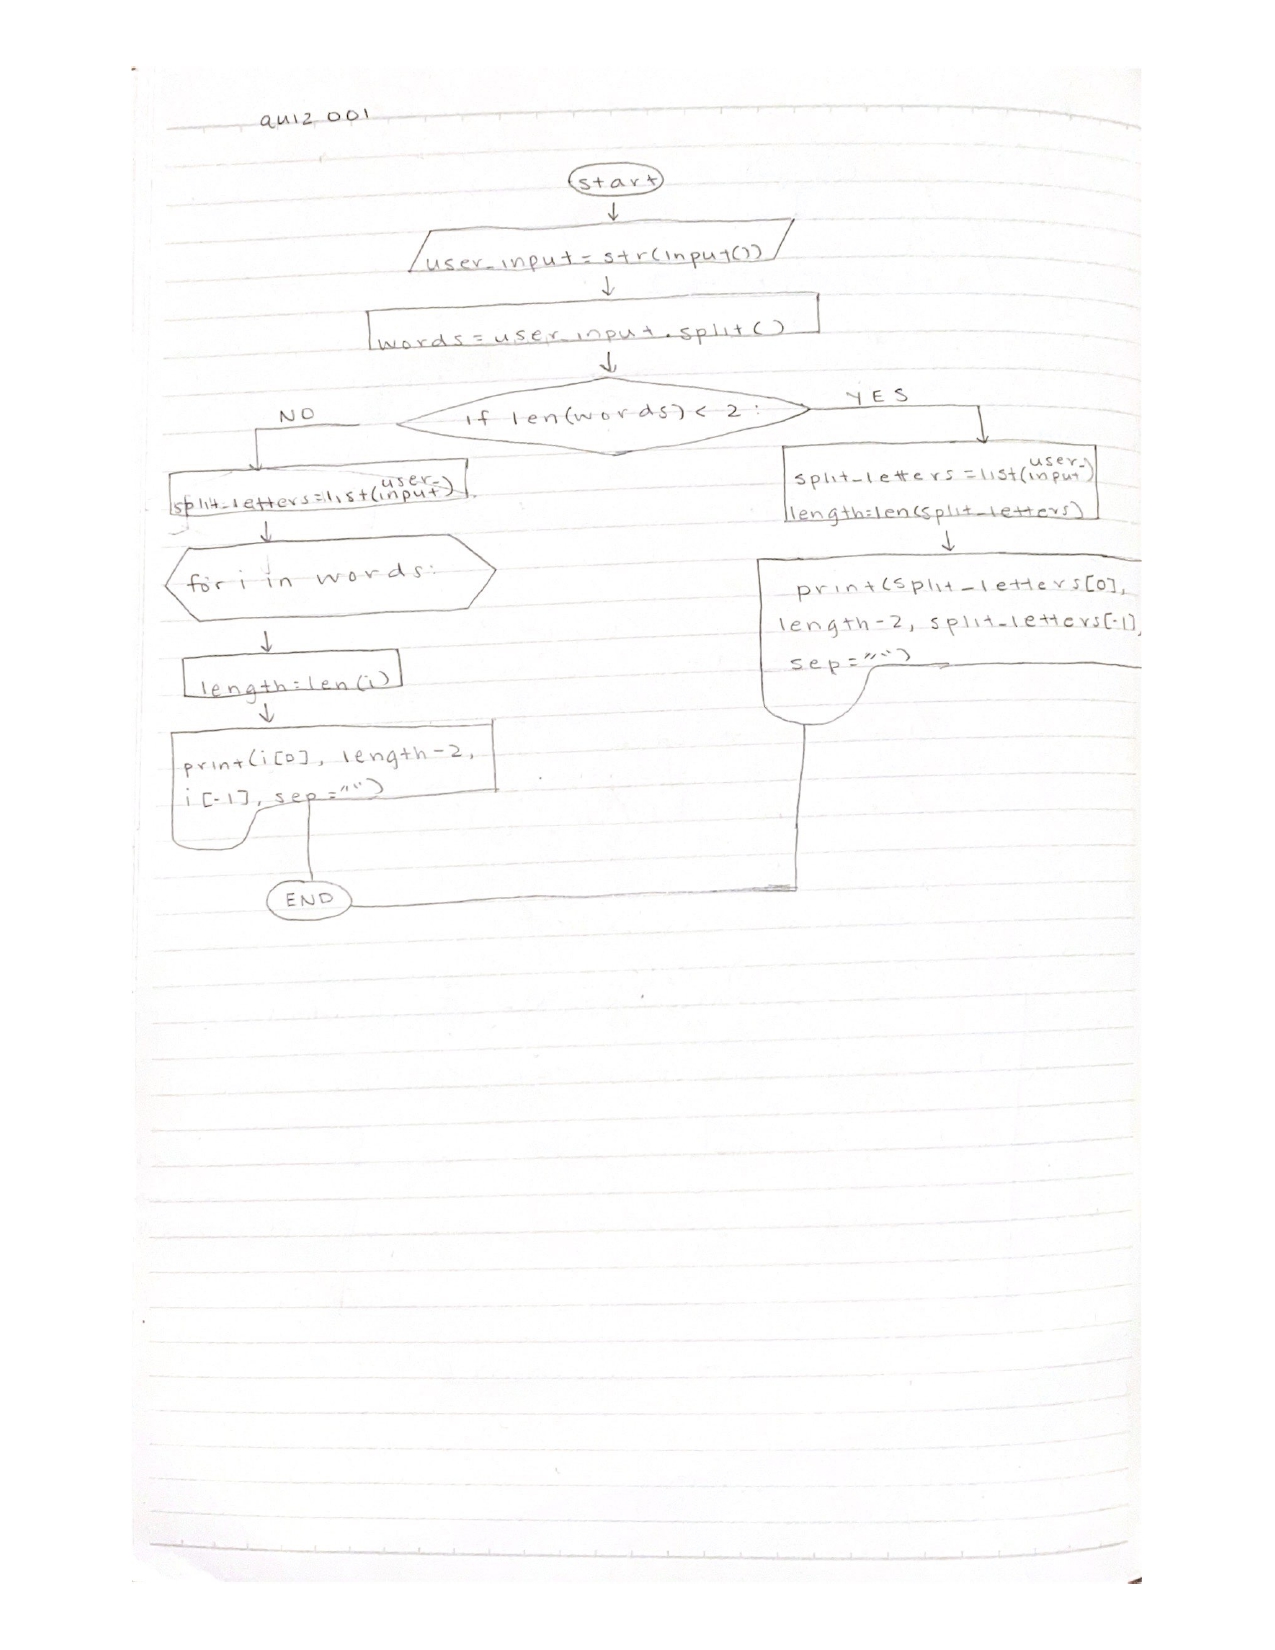 quiz 001
start
user_input = str(input())
words = user_input.split()
if len(words) < 2:
NO
YES
split_letters=list(user_
input)
for i in words:
length=len(i)
print(i[0], length-2,
i[-1], sep="")
split_letters =list(user_
input)
length=len(split_letters)
print(split_letters[0],
length-2, split_letters[-1],
sep="")
END